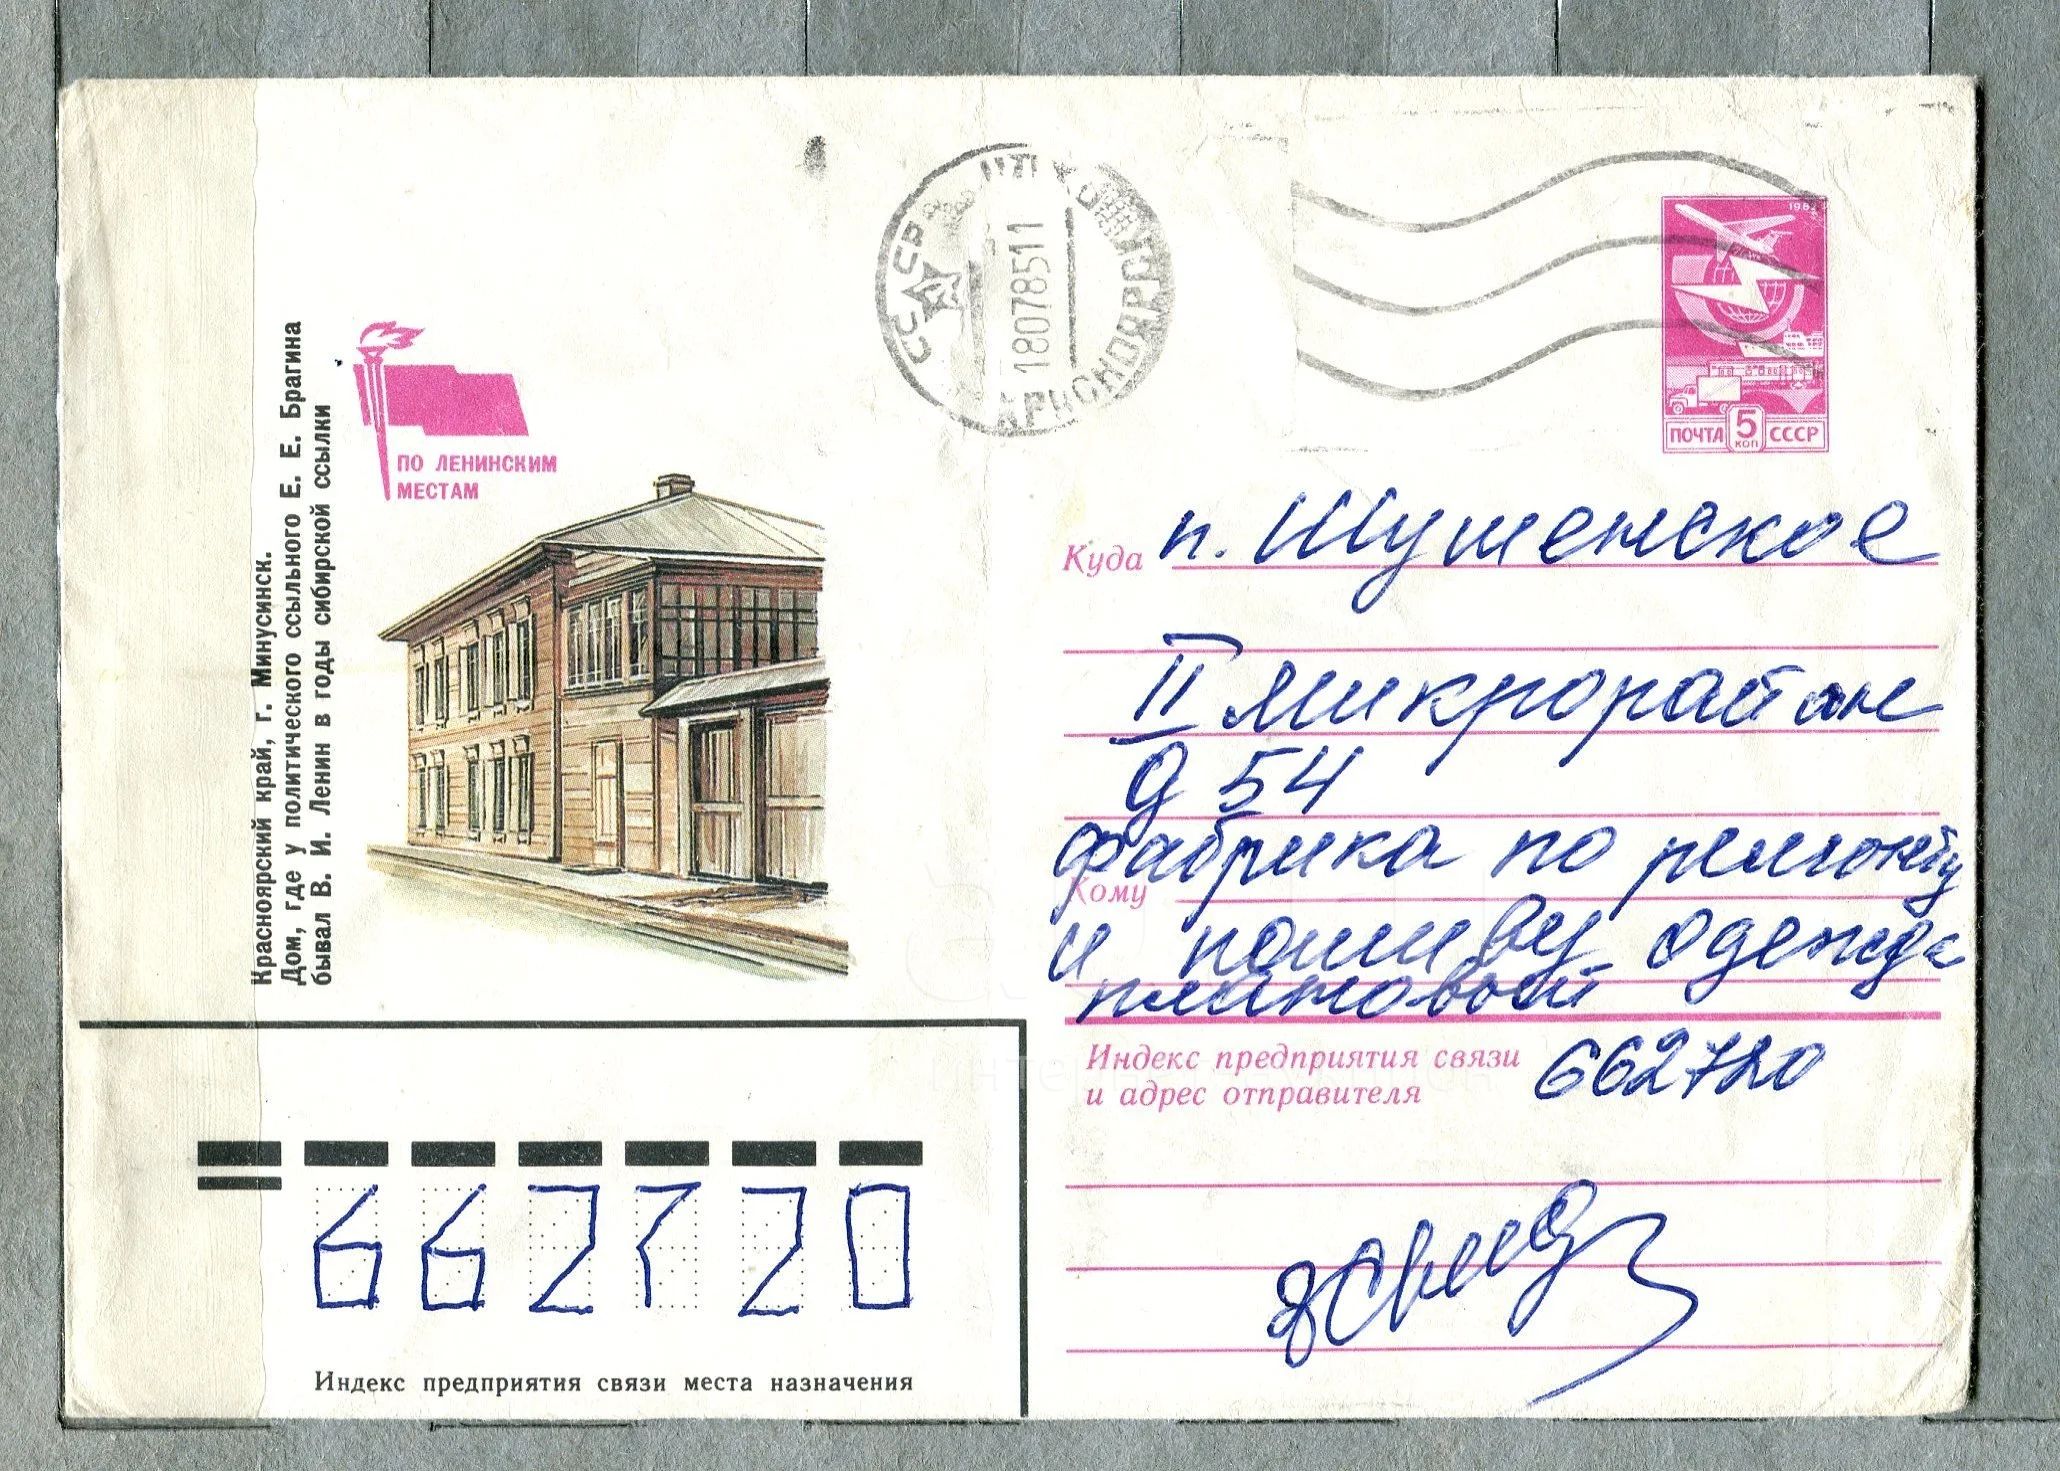 Красноярский край, г. Минусинск.
Дом, где у политического ссыльного Е. Е. Брагина
бывал В. И. Ленин в годы сибирской ссылки
ПО ЛЕНИНСКИМ
МЕСТАМ
СССР
180778511
КРАСНОЯРСК
198
ПОЧТА 5 КОП СССР
Куда п. Шушенское
II микрорайон
д 54
фабрика по ремонту
Кому
и пошиву одежды
плановый
Индекс предприятия связи
и адрес отправителя
662720
662720
Индекс предприятия связи места назначения